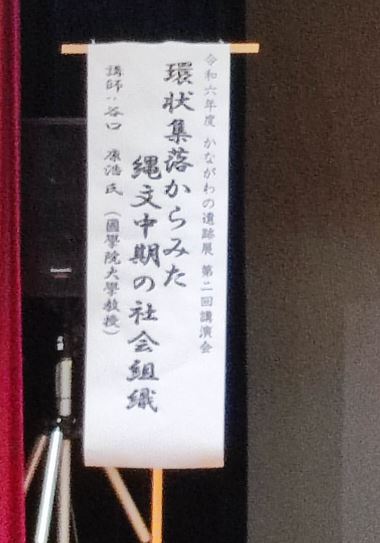 令和六年度 かながわの遺跡展 第二回講演会
環状集落からみた
縄文中期の社会組織
講師：谷口 康浩氏（國學院大學教授）